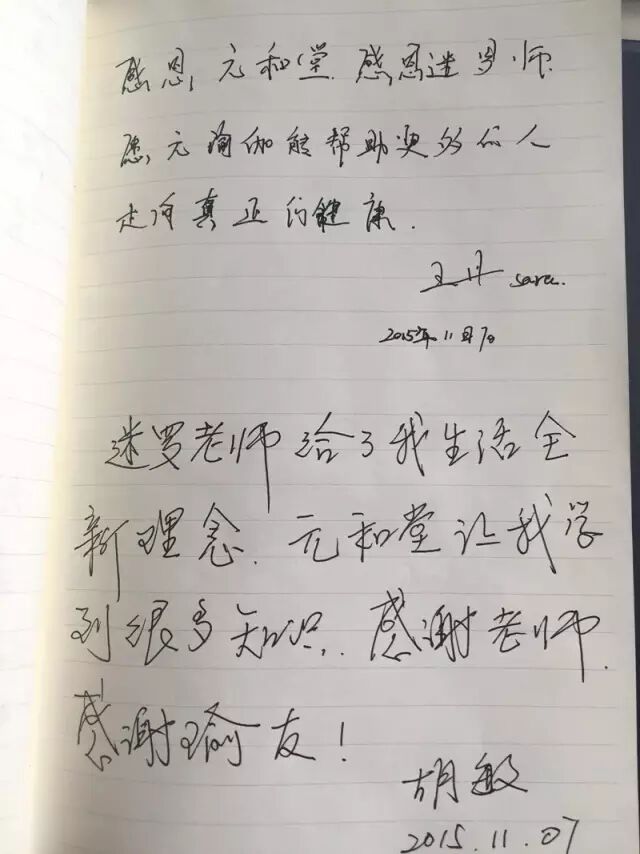 感恩元和堂.感恩迷罗师.
愿元瑜伽能帮助更多的人
走向真正的健康.
王丹 sara.
2015年11月7日
迷罗老师给了我生活全
新理念.元和堂让我学
到很多知识.感谢老师.
感谢瑜友!
胡敏
2015.11.07